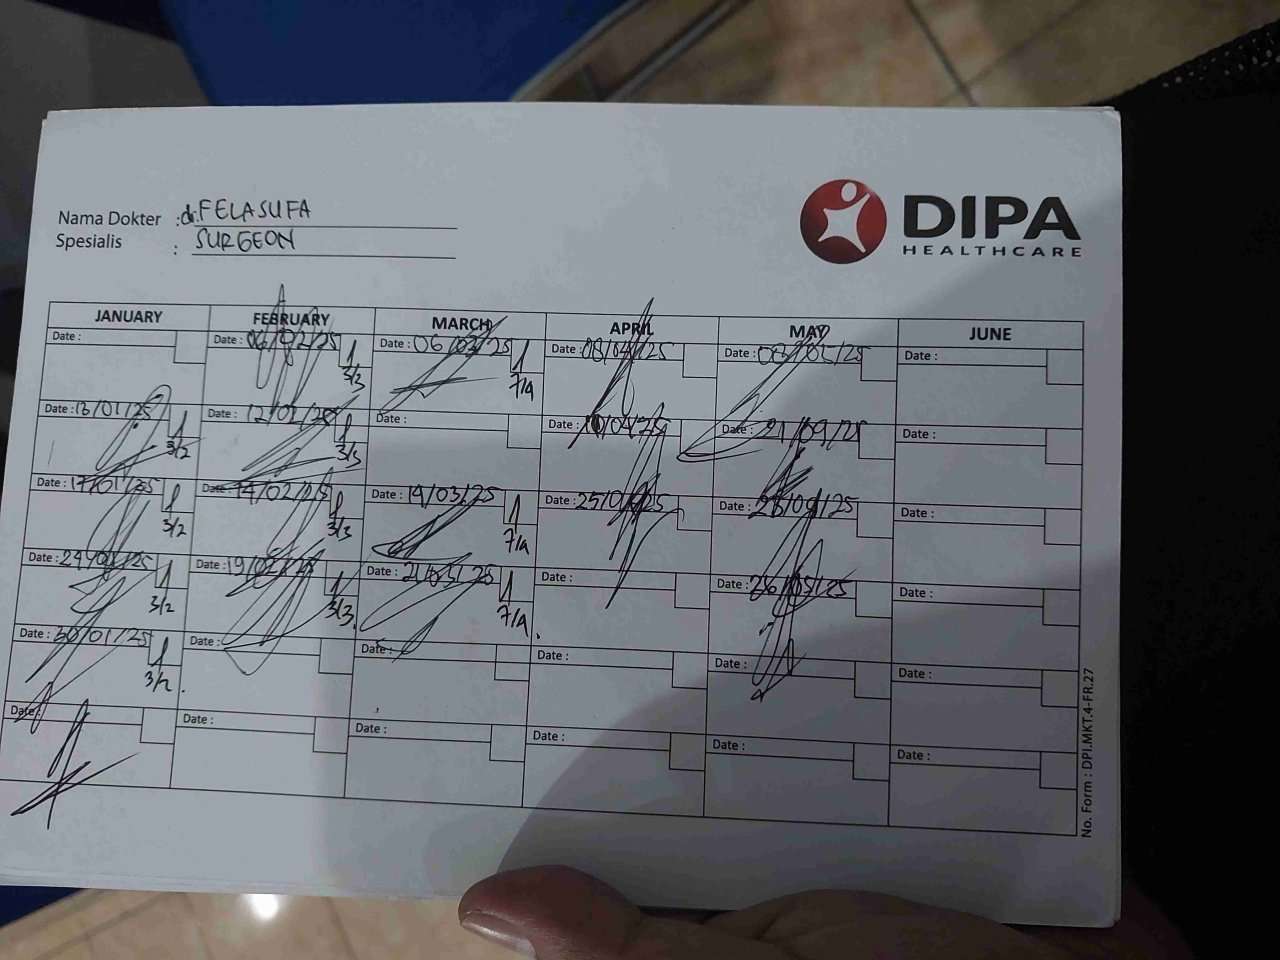 Nama Dokter : dr. FELASUFA
Spesialis : SURGEON
DIPA
HEALTHCARE
JANUARY FEBRUARY MARCH APRIL MAY JUNE
Date : Date : 06/02/25 Date : 06/03/25 Date : 08/04/25 Date : 08/05/25 Date :
3/3 7/4
Date : 13/01/25 Date : 12/02/25 Date : Date : 10/04/25 Date : 21/09/25 Date :
3/2 3/3
Date : 17/01/25 Date : 14/02/25 Date : 19/03/25 Date : 25/04/25 Date : 26/09/25 Date :
3/2 3/3 7/4
Date : 24/01/25 Date : 19/02/25 Date : 21/03/25 Date : Date : 26/05/25 Date :
3/2 3/3. 7/4.
Date : 30/01/25 Date : Date : Date : Date : Date :
3/2.
Date : Date : Date : Date : Date : Date :
No. Form : DPI.MKT.4-FR.27